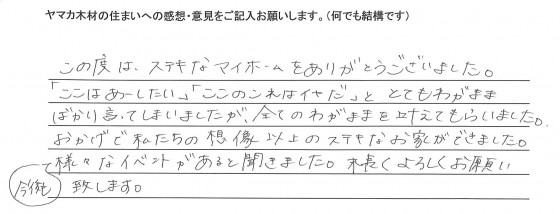 ヤマカ木材の住まいへの感想・意見をご記入お願いします。(何でも結構です)
この度は、ステキなマイホームをありがとうございました。
「ここはあーしたい」「ここのこれはイヤだ」と とてもわがまま
ばかり言ってしまいましたが、全てのわがままを叶えてもらいました。
おかげで私たちの想像以上のステキなお家ができました。
様々なイベントがあると聞きました。末長くよろしくお願い
今後も 致します。